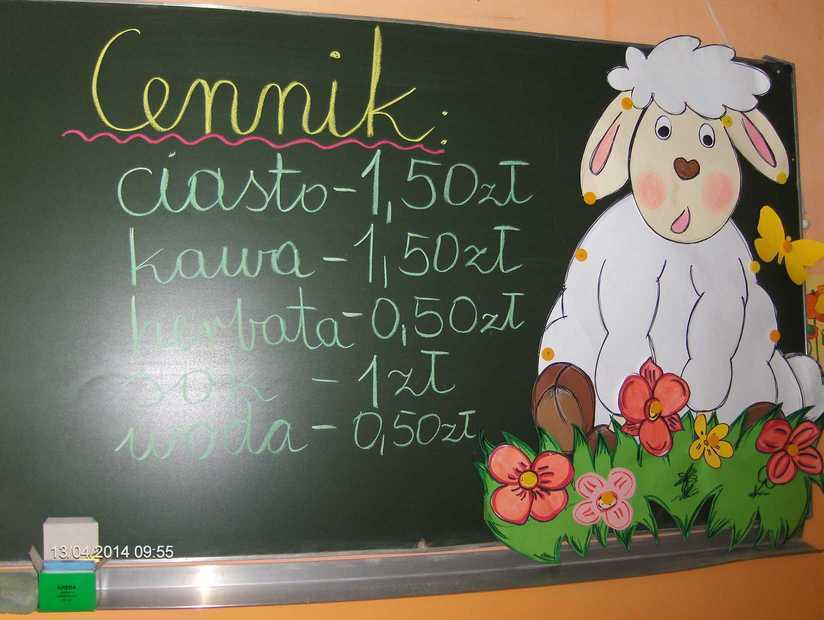 Cennik:
ciasto-1,50zł
kawa-1,50zł
herbata-0,50zł
sok -1zł
woda-0,50zł
13.04.2014 09:55